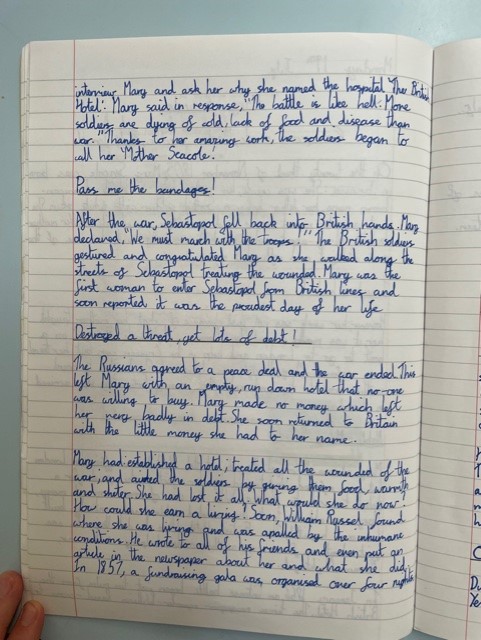 interview Mary and ask her why she named the hospital 'The British
Hotel'. Mary said in response, "The battle is like hell. More
soldiers are dying of cold, lack of food and disease than
war." Thanks to her amazing work, the soldiers began to
call her 'Mother Seacole'.
Pass me the bandages!
After the war, Sebastopol fell back into British hands. Mary
declared, "We must march with the troops!" The British soldiers
gestured and congratulated Mary as she walked along the
streets of Sebastopol treating the wounded. Mary was the
first woman to enter Sebastopol from British lines and
soon reported it was the proudest day of her life
Destroyed a threat, yet lots of debt!
The Russians agreed to a peace deal and the war ended. This
left Mary with an empty, run down hotel that no-one
was willing to buy. Mary made no money which left
her very badly in debt. She soon returned to Britain
with the little money she had to her name.
Mary had established a hotel, treated all the wounded of the
war, and aided the soldiers by giving them food, warmth
and shelter. She had lost it all, what would she do now?
How could she earn a living? Soon, William Russel found
where she was lying and was apalled by the inhumane
conditions. He wrote to all of his friends and even put an
article in the newspaper about her and what she did.
In 1857, a fundraising gala was organised over four nights